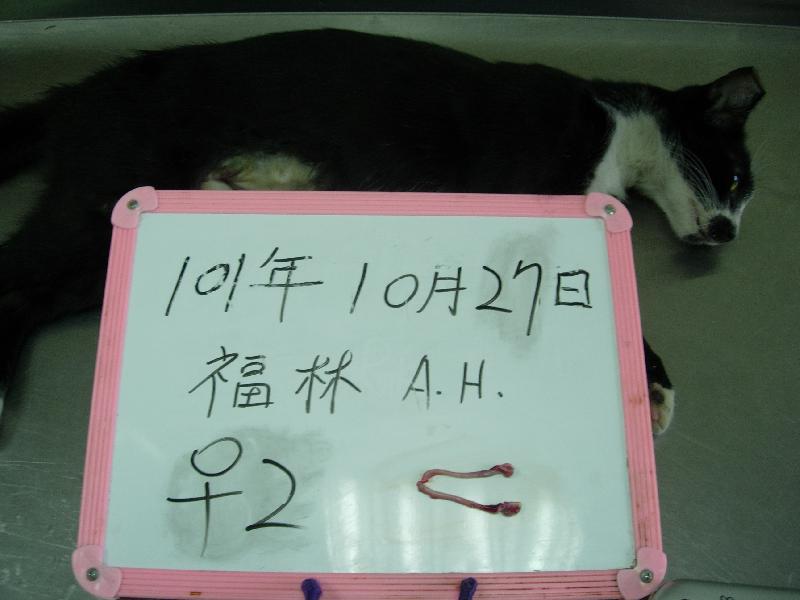 101年 10月27日
福林 A.H.
♀2